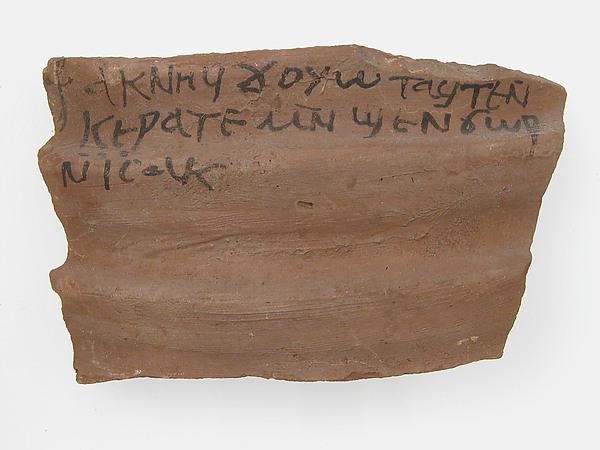 ⳨ ⲁⲕⲛⲏⲩ ϫⲟⲩⲱ ⲧⲁϣⲧⲉⲛ
ⲕⲉⲣⲁⲧⲉ ⲙⲛ̄ ϣⲉⲛϫⲱⲣ
ⲛⲓⲥⲁⲩⲕ